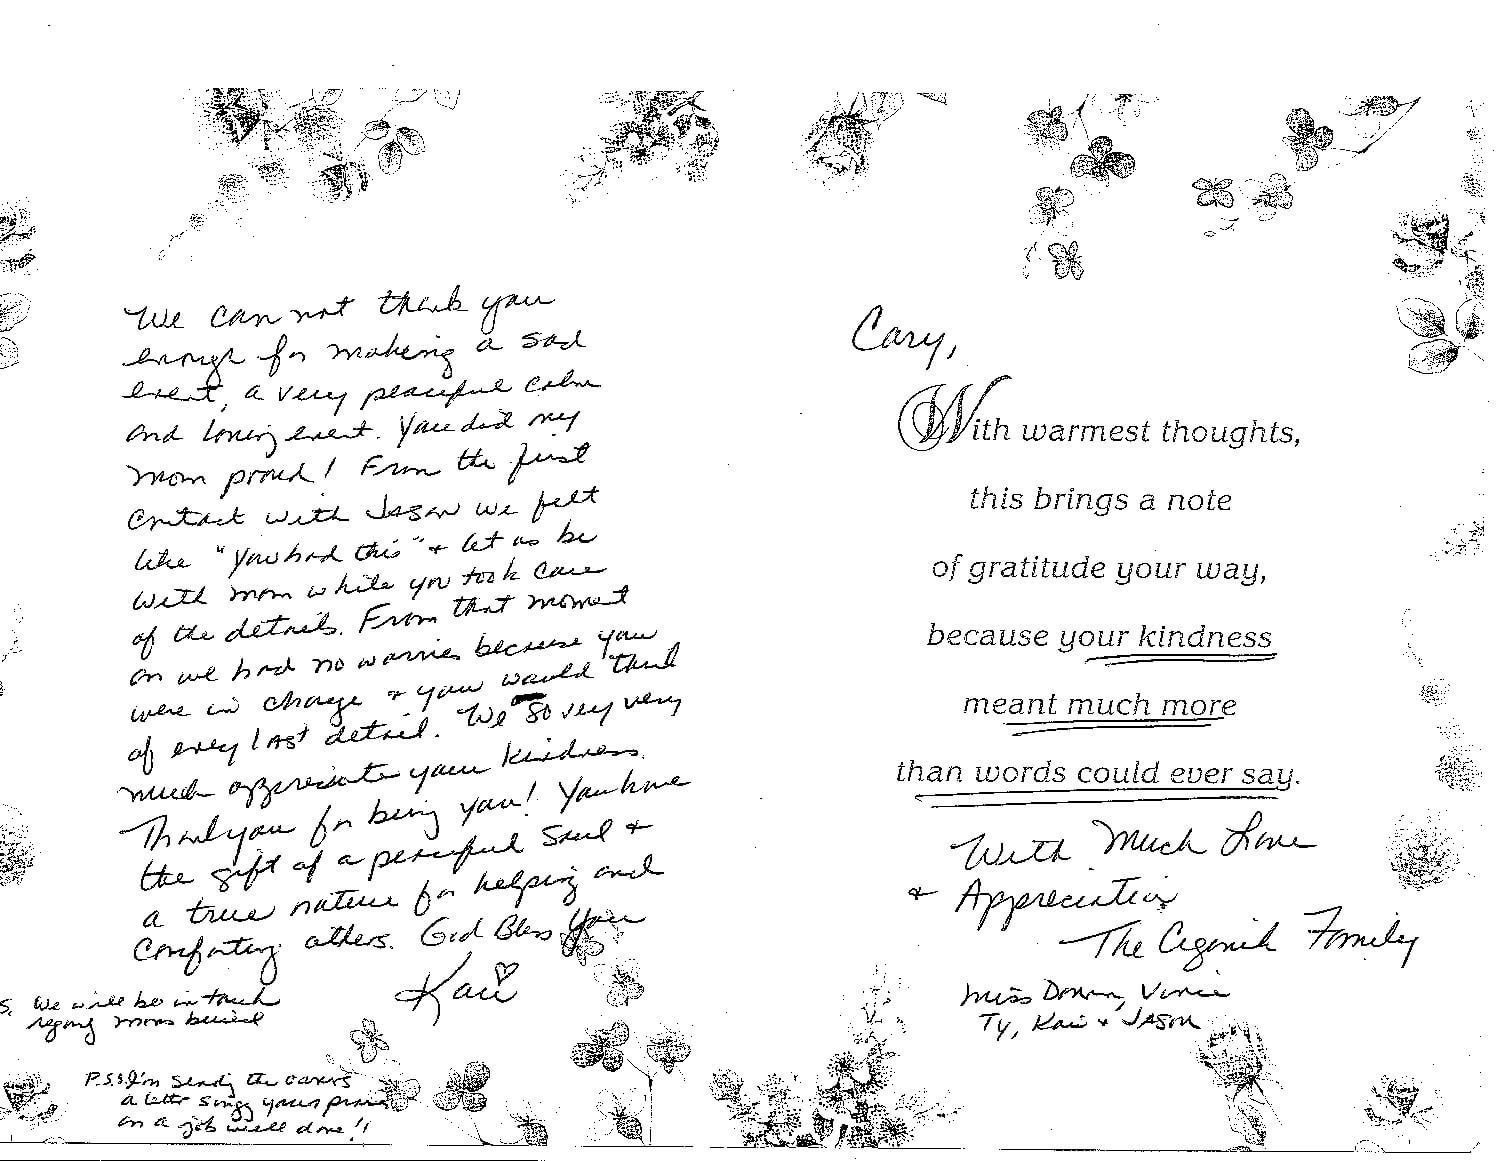 We can not thank you
enough for making a sad
event, a very peaceful calm
and loving event. You did my
mom proud! From the first
contact with Jason we felt
like "you had this" + let us be
with mom while you took care
of the details. From that moment
on we had no worries because you
were in charge + you would think
of every last detail. We so very very
much appreciate your kindness.
Thank you for being you! You have
the gift of a peaceful soul +
a true nature for helping and
comforting others. God Bless You
Kari
S. We will be in touch
regarg moms buriel
P.S.S. I'm sendg the owners
a lettr singg yours praises
on a job well done!!
Cary,
With warmest thoughts,
this brings a note
of gratitude your way,
because your kindness
meant much more
than words could ever say.
With Much Love
+ Appreciation
The Family
Miss Donna, Vinnie
Ty, Kari + JASON